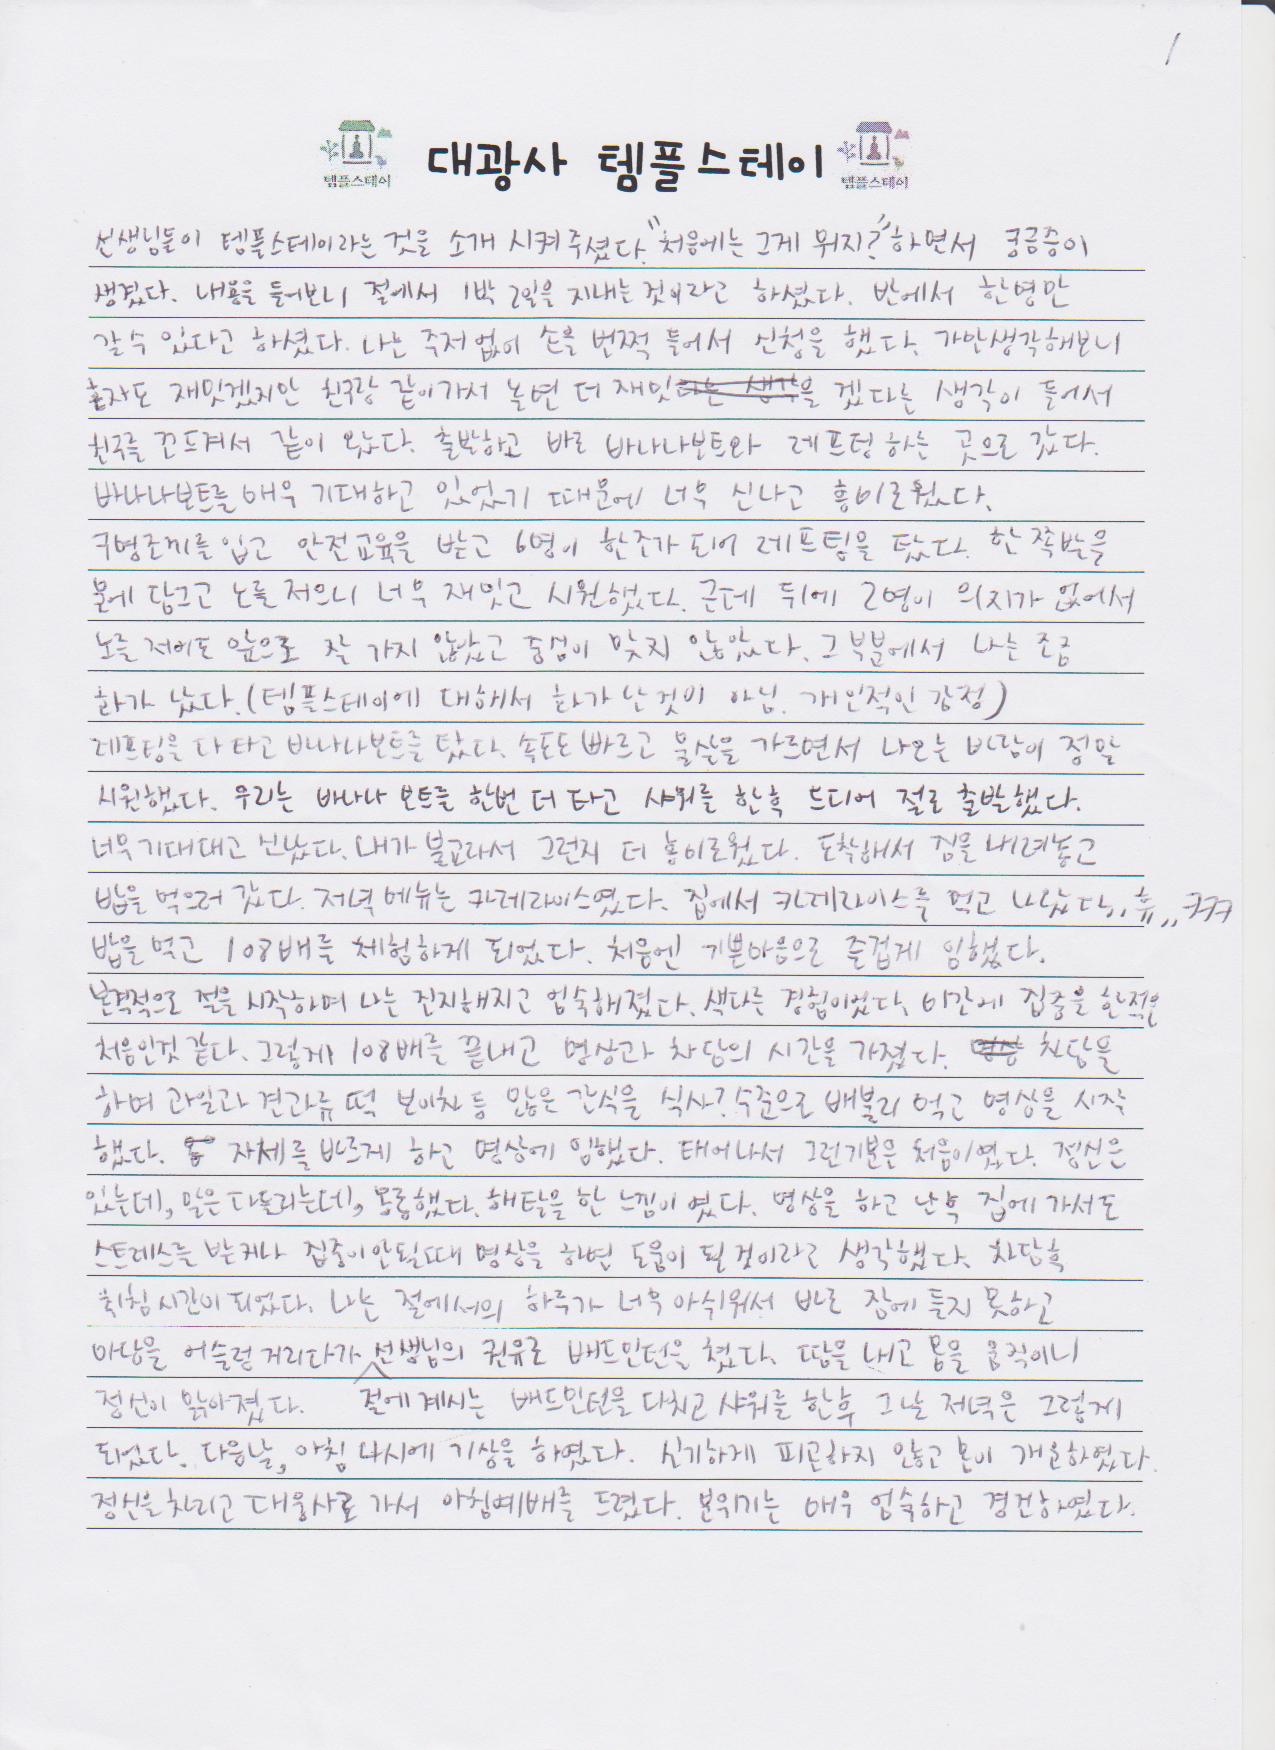 1
대광사 템플스테이
템플스테이 템플스테이
선생님들이 템플스테이라는 것을 소개 시켜주셨다. "처음에는 그게 뭐지?" 하면서 궁금증이
생겼다. 내용을 들어보니 절에서 1박 2일을 지내는 것이라고 하셨다. 반에서 한명만
갈 수 있다고 하셨다. 나는 주저 없이 손을 번쩍 들어서 신청을 했다. 가만생각해보니
혼자도 재밌겠지만 친구랑 같이가서 놀면 더 재밌겠다는 생각이 들어서
친구를 꼬드겨서 같이 왔다. 출발하고 바로 바나나보트와 레프팅하는 곳으로 갔다.
바나나보트를 매우 기대하고 있었기 때문에 너무 신나고 흥미로웠다.
구명조끼를 입고 안전교육을 받고 6명이 한조가 되어 레프팅을 탔다. 한 쪽발을
물에 담그고 노를 저으니 너무 재밌고 시원했다. 근데 뒤에 2명이 의지가 없어서
노를 저어도 앞으로 잘 가지 않았고 중심이 맞지 않았다. 그 부분에서 나는 조금
화가 났다. (템플스테이에 대해서 화가 난것이 아님. 개인적인 감정)
레프팅을 다 타고 바나나보트를 탔다. 속도도 빠르고 물살을 가르면서 나오는 바람이 정말
시원했다. 우리는 바나나 보트를 한번 더 타고 샤워를 한후 드디어 절로 출발했다.
너무 기대대고 신났다. 내가 불교라서 그런지 더 흥미로웠다. 도착해서 짐을 내려놓고
밥을 먹으러 갔다. 저녁 메뉴는 카레라이스였다. 집에서 카레라이스를 먹고 나왔다,, 휴,, ㅋㅋㅋ
밥을 먹고 108배를 체험하게 되었다. 처음엔 기쁜마음으로 즐겁게 임했다.
본격적으로 절을 시작하며 나는 진지해지고 엄숙해졌다. 색다른 경험이었다. 집중을 한적은
처음인것 같다. 그렇게 108배를 끝내고 명상과 차담의 시간을 가졌다. 차담을
하며 과일과 견과류 떡 보이차 등 많은 간식을 식사? 수준으로 배불리 먹고 명상을 시작
했다. 자체를 바르게 하고 명상에 임했다. 태어나서 그런기분은 처음이였다. 정신은
있는데, 말은 다들리는데, 몽롱했다. 해탈을 한 느낌이 였다. 명상을 하고 난후 집에 가서도
스트레스를 받거나 집중이안될때 명상을 하면 도움이 될 것이라고 생각했다. 차담후
취침시간이 되었다. 나는 절에서의 하루가 너무 아쉬워서 바로 잠에 들지 못하고
마당을 어슬렁 거리다가 절에 계시는 선생님의 권유로 배드민턴을 쳤다. 땀을 내고 몸을 움직이니
정신이 맑아졌다. 배드민턴을 다치고 샤워를 한후 그날 저녁은 그렇게
되었다. 다음날, 아침 4시에 기상을 하였다. 신기하게 피곤하지 않고 몸이 개운하였다.
정신을 차리고 대웅사로 가서 아침예배를 드렸다. 분위기는 매우 엄숙하고 경건하였다.